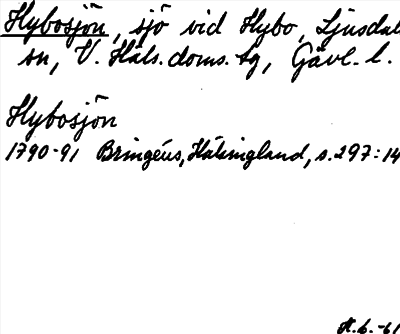 Hybosjön, sjö vid Hybo, Ljusdals
sn, V. Häls. doms. tg, Gävl. l.
Hybosjön
1790-91 Bringéus, Hälsingland, s. 297:14
H.b. -61